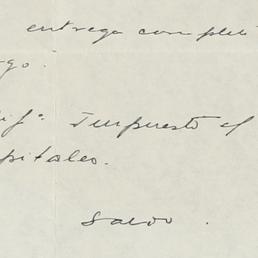 entrega comple
go.
if.ª Impuesto el
pitales.
Saldo .